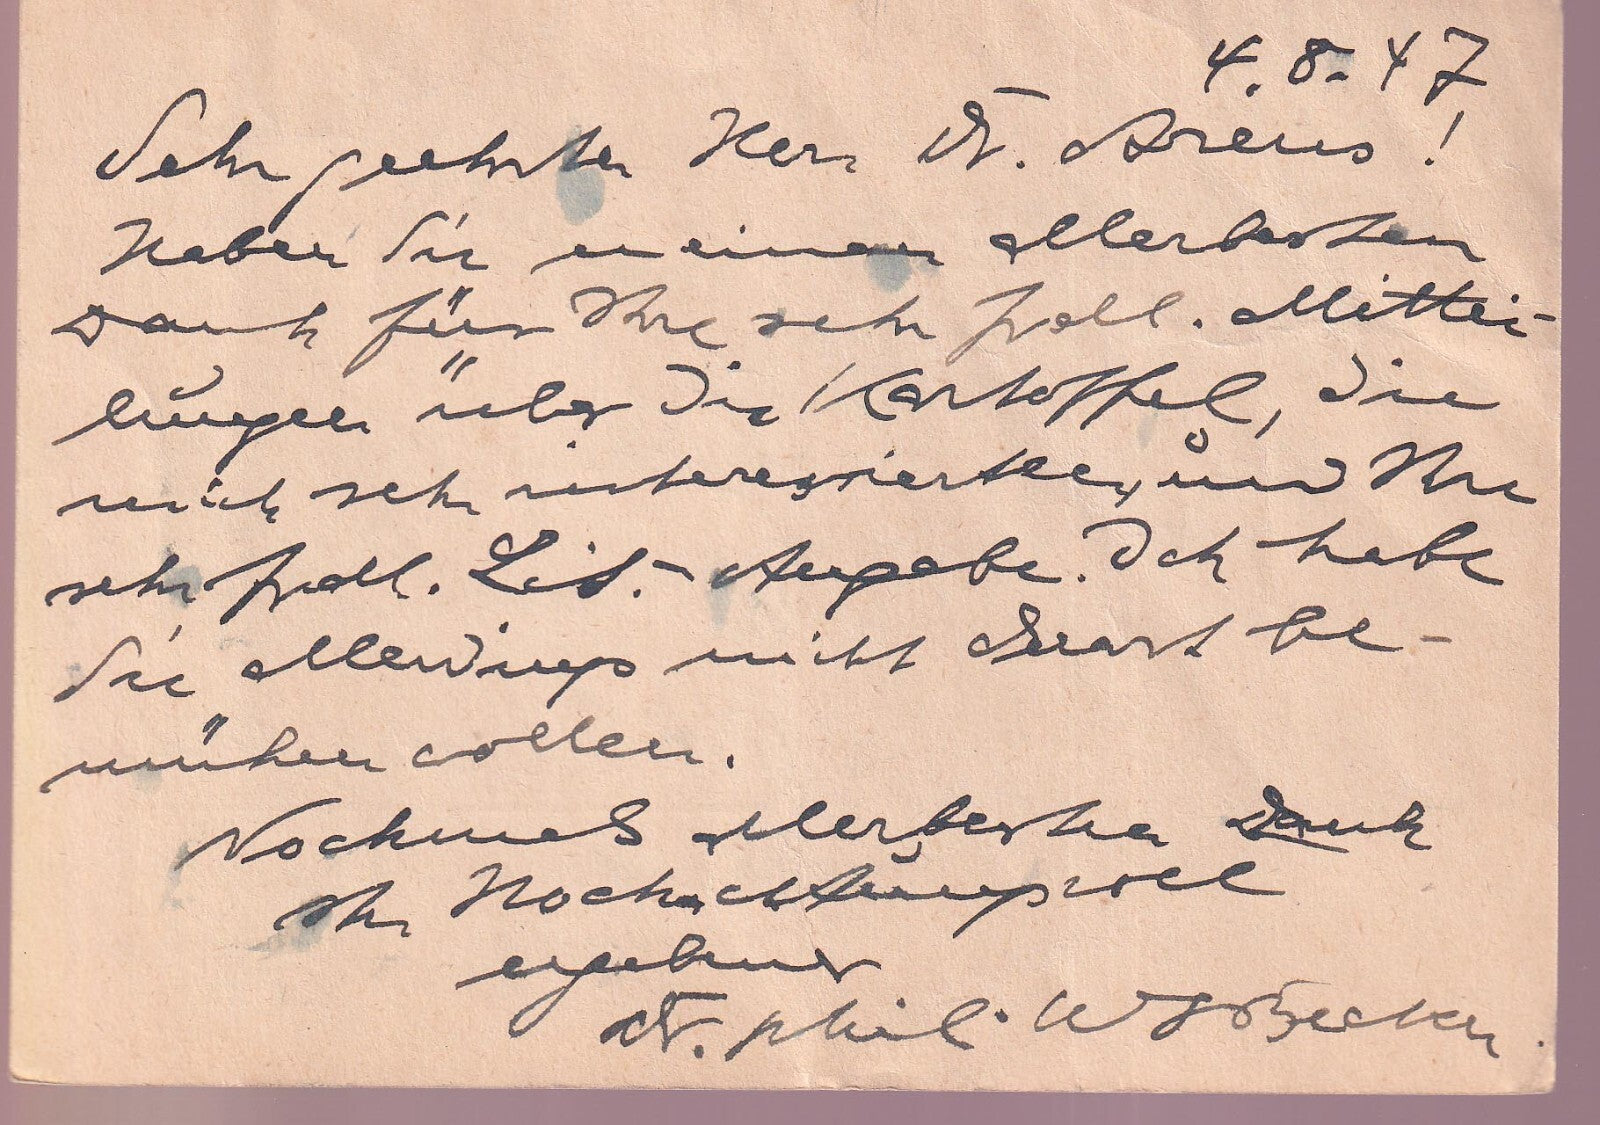 4.8.47
Sehr geehrter Herr Dr. Arens!
Haben Sie meinen allerbesten
Dank für Ihre sehr frdll. Mittei-
lungen über die Kartoffel, die
mich sehr interessierten, und Ihre
sehr frdll. Lit.-Angabe. Ich habe
Sie allerdings nicht derart be-
mühen wollen.
Nochmals allerbesten Dank
Ihr Hochachtungsvoll
ergebener
Dr. phil. W Becker.